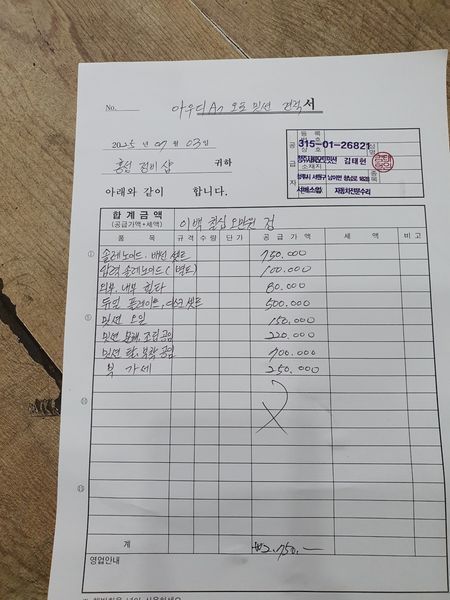 No.
아우디 A7 오토 밋션 견적서
2025년 07월 03일
홍성 정비샵 귀하
아래와 같이 합니다.
등록번호 315-01-26821
상호 김태현
청주시 서원구 남이면 청남로
서비스업 자동차전문수리
합계금액 이백 칠십 오만원 정
(공급가액+세액)
품목 규격 수량 단가 공급가액 세액 비고
① 솔레노이드, 세트 750.000
압력 솔레노이드 (별도) 100.000
외부, 내부 휠타 80.000
듀얼 플레이트, 세트 500.000
⑤ 밋션 오일 150.000
밋션 분해, 조립 공임 220.000
밋션 탈, 부착 공임 700.000
부가세 250.000
⑩
⑮
계 ₩2.750.—
영업안내